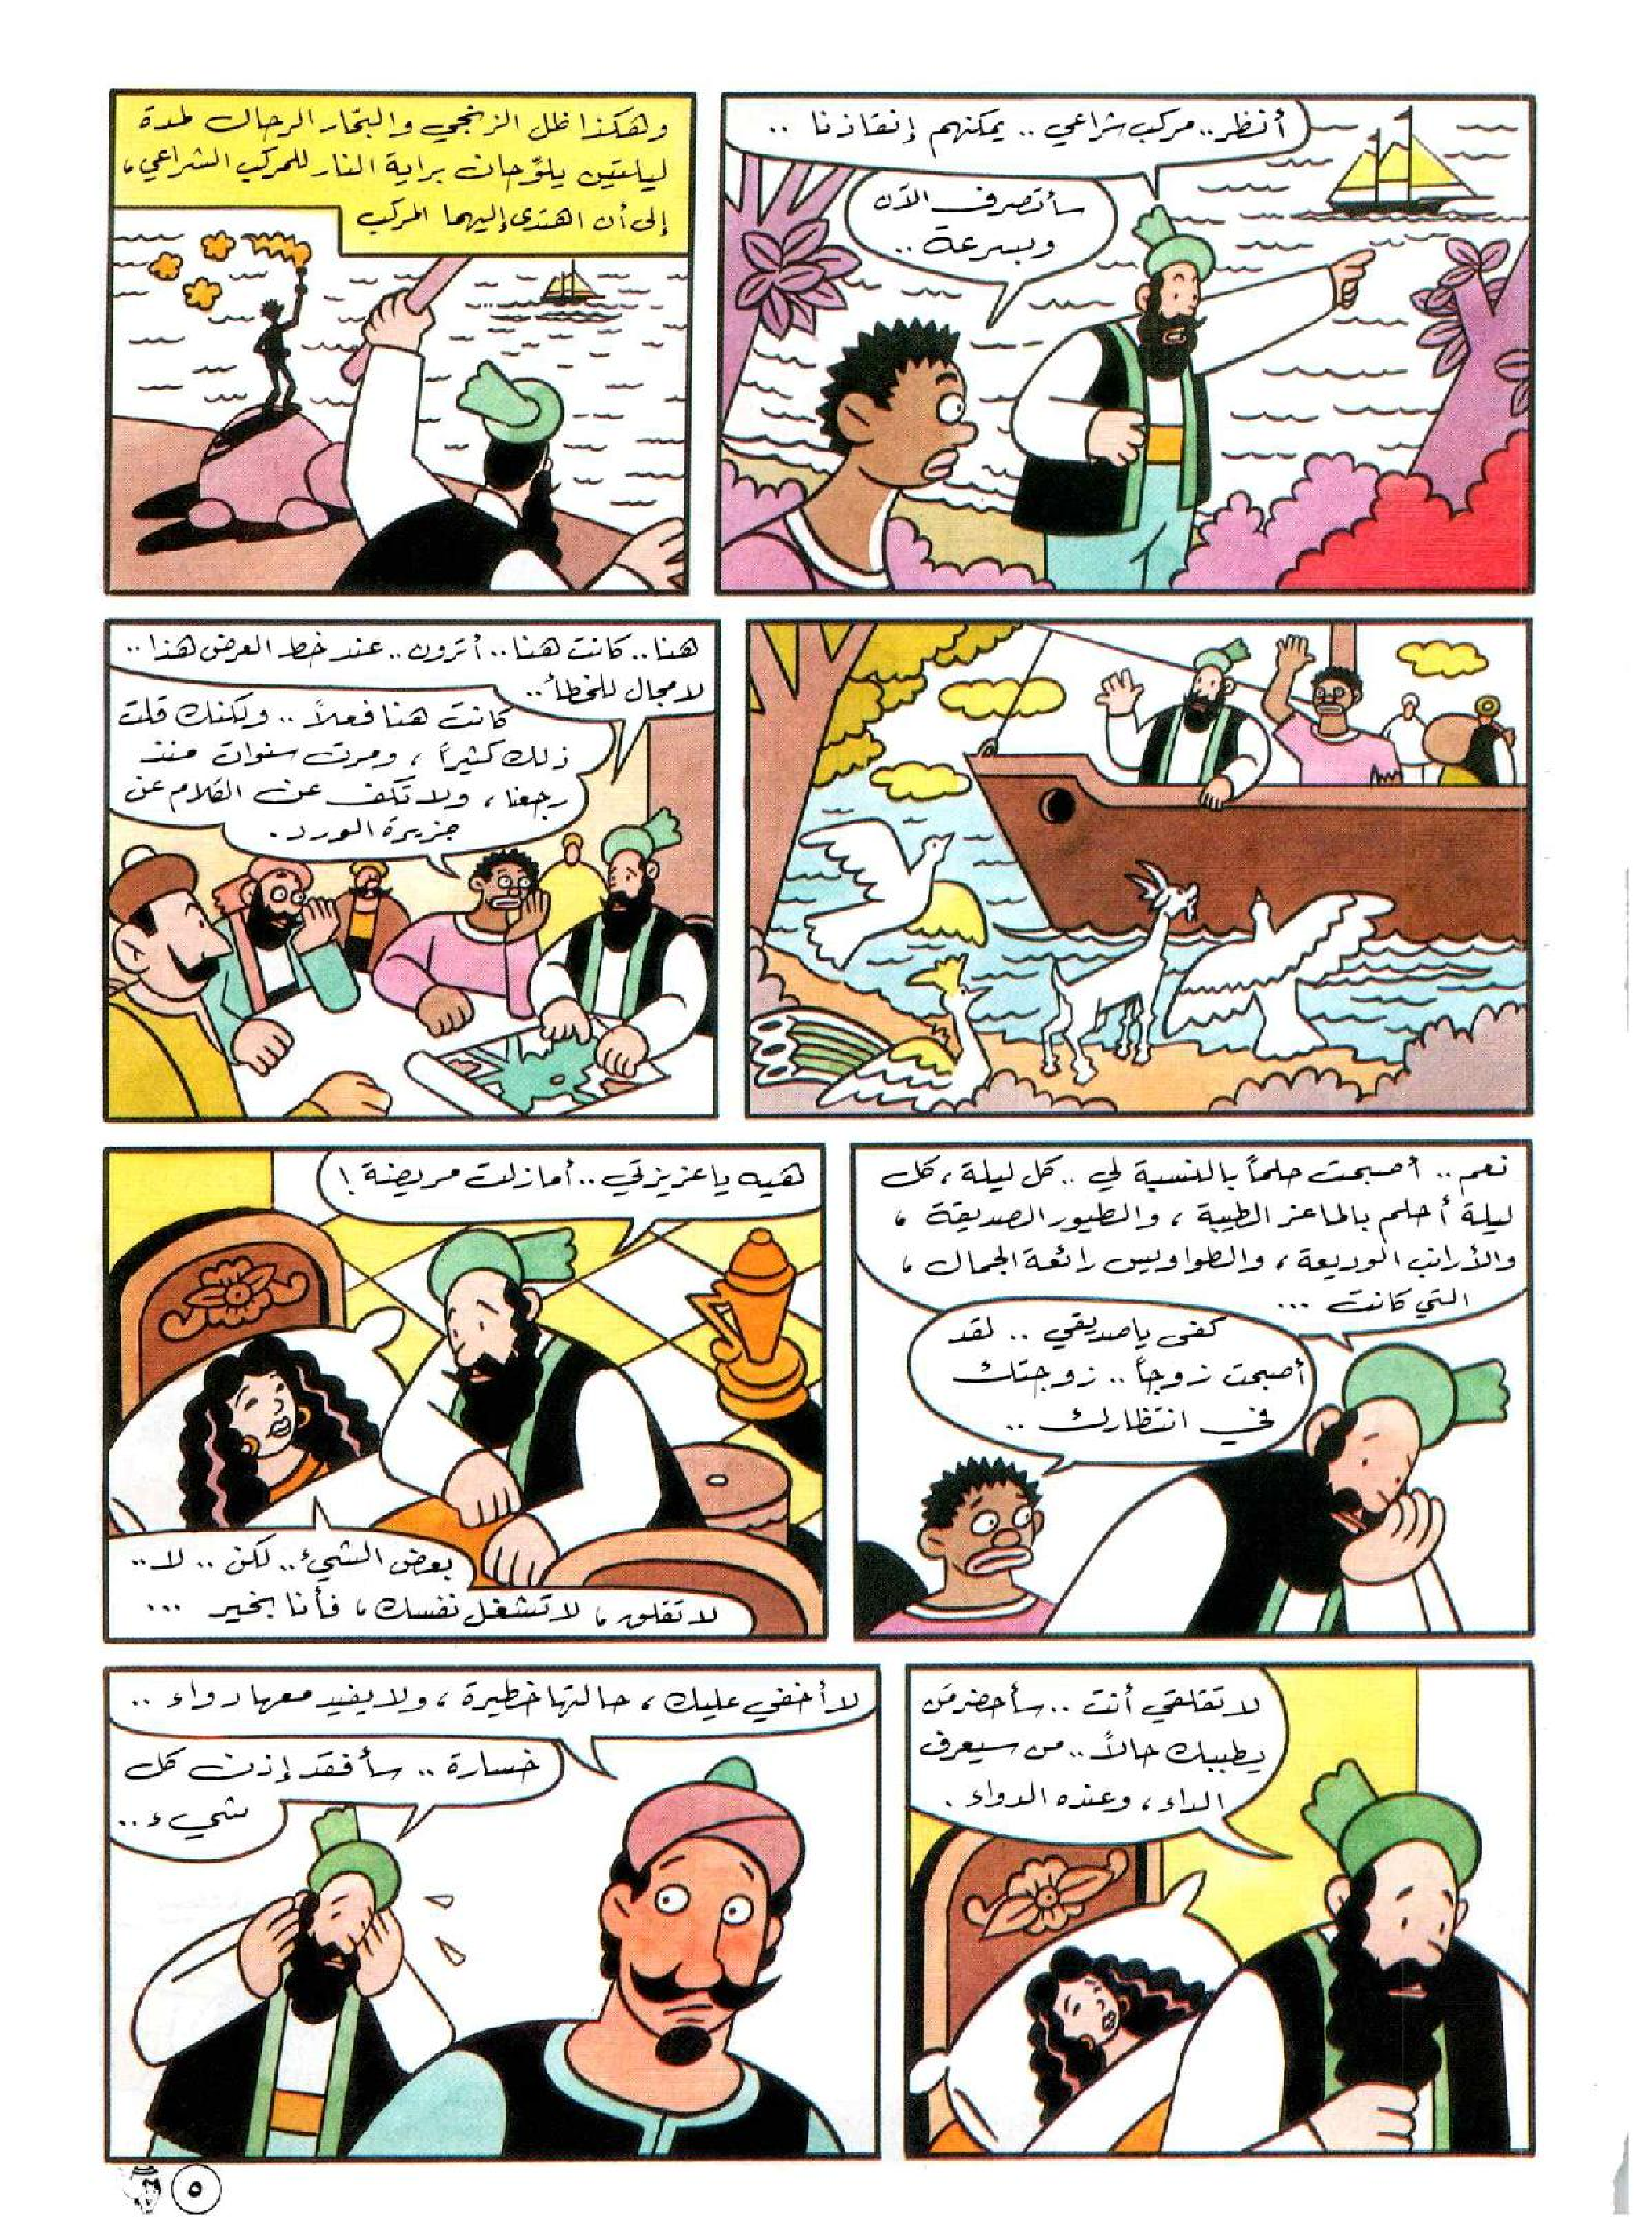 أنظر.. مركب شراعي.. يمكنهم إنقاذنا ..
سأتصرف الآن
وبسرعة ..
وهكذا ظل الزنجي والبحّار الرحال لمدة
ليلتين يلوّحان براية النار للمركب الشراعي،
إلى أن اهتدى إليهما المركب
هنا.. كانت هنا.. أترون.. عند خط العرض هذا ..
لا مجال للخطأ..
كانت هنا فعلاً .. ولكنك قلت
ذلك كثيراً ، ومرت سنوات منذ
رجعنا ، ولا تكف عن الكلام عن
جزيرة الورد .
نعم .. أصبحت حلماً بالنسبة لي .. كل ليلة ، كل
ليلة أحلم بالماعز الطيبة ، والطيور الصديقة ،
والأرانب الوديعة ، والطواويس رائعة الجمال ،
التي كانت ...
كفى يا صديقي .. لقد
أصبحت زوجاً .. زوجتك
في انتظارك ..
هيه يا عزيزتي .. أما زلت مريضة !
بعض الشيء .. لكن .. لا ..
لا تقلق ، لا تشغل نفسك ، فأنا بخير ...
لا تقلقي أنت .. سأحضر مَن
يطببك حالاً .. من سيعرف
الداء ، وعنده الدواء .
لا أخفي عليك ، حالتها خطيرة ، ولا يفيد معها دواء ..
خسارة .. سأفقد إذن كل
شيء ..
٥